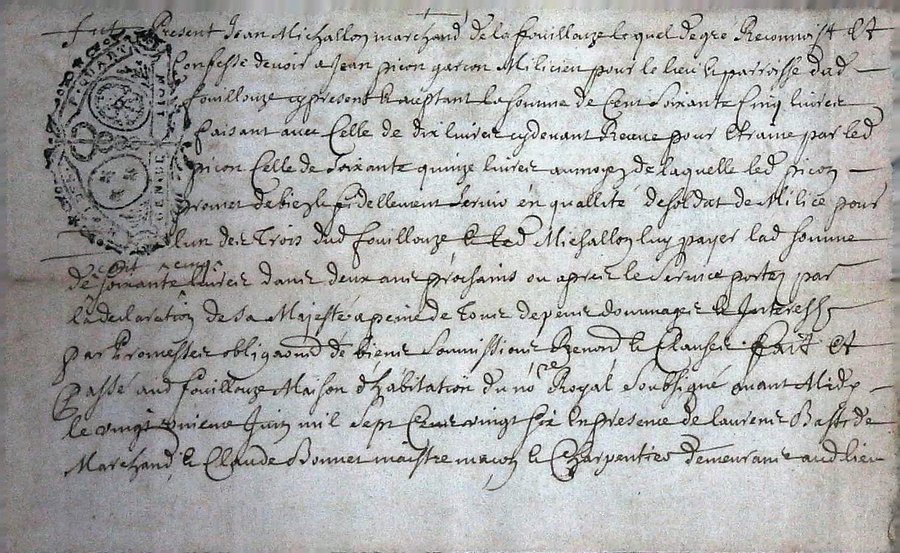 Fut Present Jean Michallon marchand de la fouillouze lequel de gré Reconnoist Et
Confesse devoir a Jean picon garcon Milicien pour le lieu & parroisse dud
fouillouze cy present & acceptant la somme de Cent soixante Cinq livres
faisant avec Celle de dix livres cydevant Receue pour Etraine par led
picon Celle de soixante quinze livres au moyen de laquelle led picon
promet de bien & fidellement servir en quallité de soldat de Milice pour
lun des Trois dud fouillouze & led Michallon luy payer lad somme
de soixante livres dans deux ans prochains ou apres le service porté par
la declaration de sa Majesté a peine de Tous depens dommages & Interests
par Promesses obligaond de biens soumissions Renond & Clauses. fait et
Passé aud fouillouze Maison d'habitation du nore Royal soubsigné avant Midy
le vingt Juin mil sept Cens vingt six En presence de laurens Bastide
Marchand & Claude Bonnet maistre macon & Charpentier demeurans aud lieu
GENER
LION